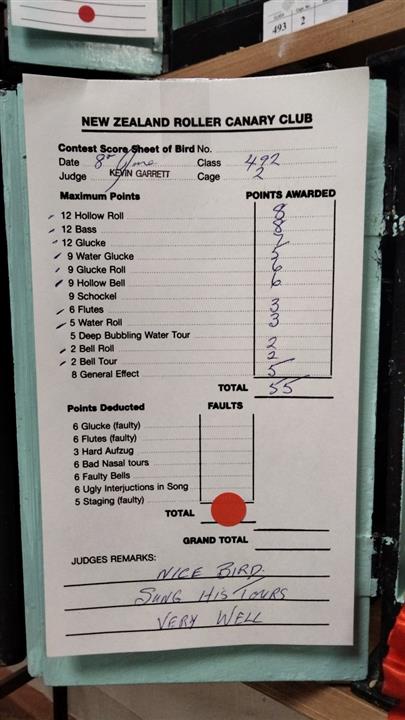 493 2
NEW ZEALAND ROLLER CANARY CLUB
Contest Score Sheet of Bird No.
Date 8th June Class 492
Judge KEVIN GARRETT Cage 2
Maximum Points POINTS AWARDED
12 Hollow Roll 8
12 Bass 8
12 Glucke 7
9 Water Glucke 5
9 Glucke Roll 6
9 Hollow Bell 6
9 Schockel
6 Flutes 3
5 Water Roll 3
5 Deep Bubbling Water Tour
2 Bell Roll 2
2 Bell Tour 2
8 General Effect 5
TOTAL 55
Points Deducted FAULTS
6 Glucke (faulty)
6 Flutes (faulty)
3 Hard Aufzug
6 Bad Nasal tours
6 Faulty Bells
6 Ugly Interjuctions in Song
5 Staging (faulty)
TOTAL
GRAND TOTAL
JUDGES REMARKS:
NICE BIRD.
SUNG HIS TOURS
VERY WELL